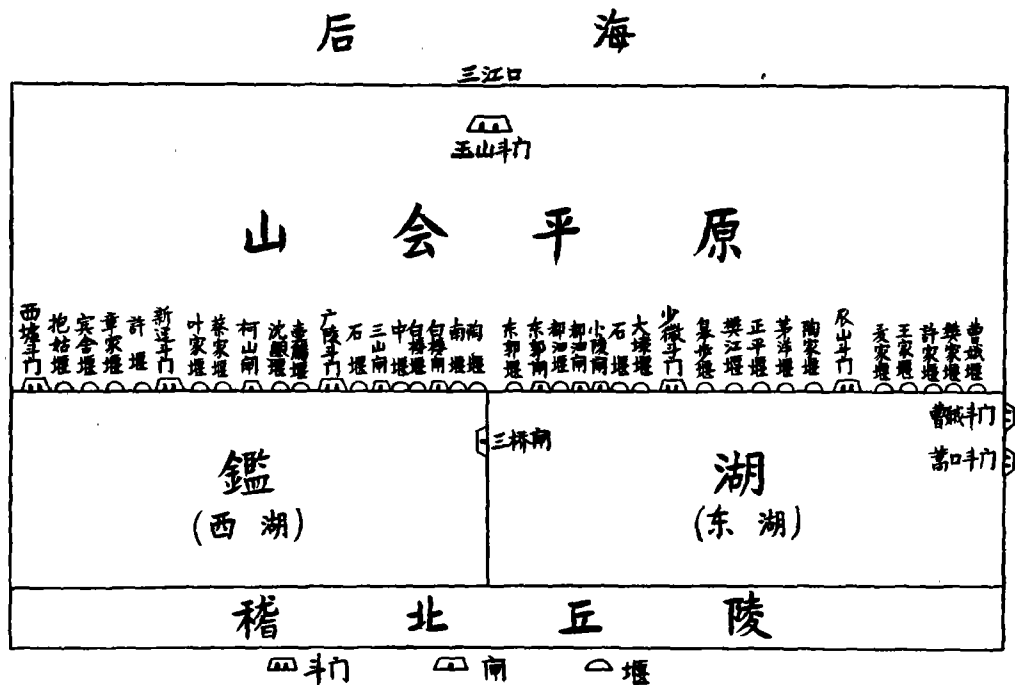 后海
三江口
玉山斗门
山会平原
西墟斗门
抱姑堰
宾舍堰
章家堰
許堰
新迳斗门
叶家堰
蔡家堰
柯山闸
沈酿堰
壶觞堰
广陵斗门
石堰
三山闸
中堰
白楼堰
白楼闸
南堰
陶堰
东郭堰
东郭闸
都泗堰
都泗闸
小陵闸
石堰
大埭堰
少微斗门
皋步堰
樊江堰
正平堰
茅洋堰
陶家堰
王家堰
許家堰
樊家堰
曹娥堰
三桥闸
曹娥斗门
蒿口斗门
鑑湖
(西湖)
(东湖)
稽北丘陵
斗门
闸
堰